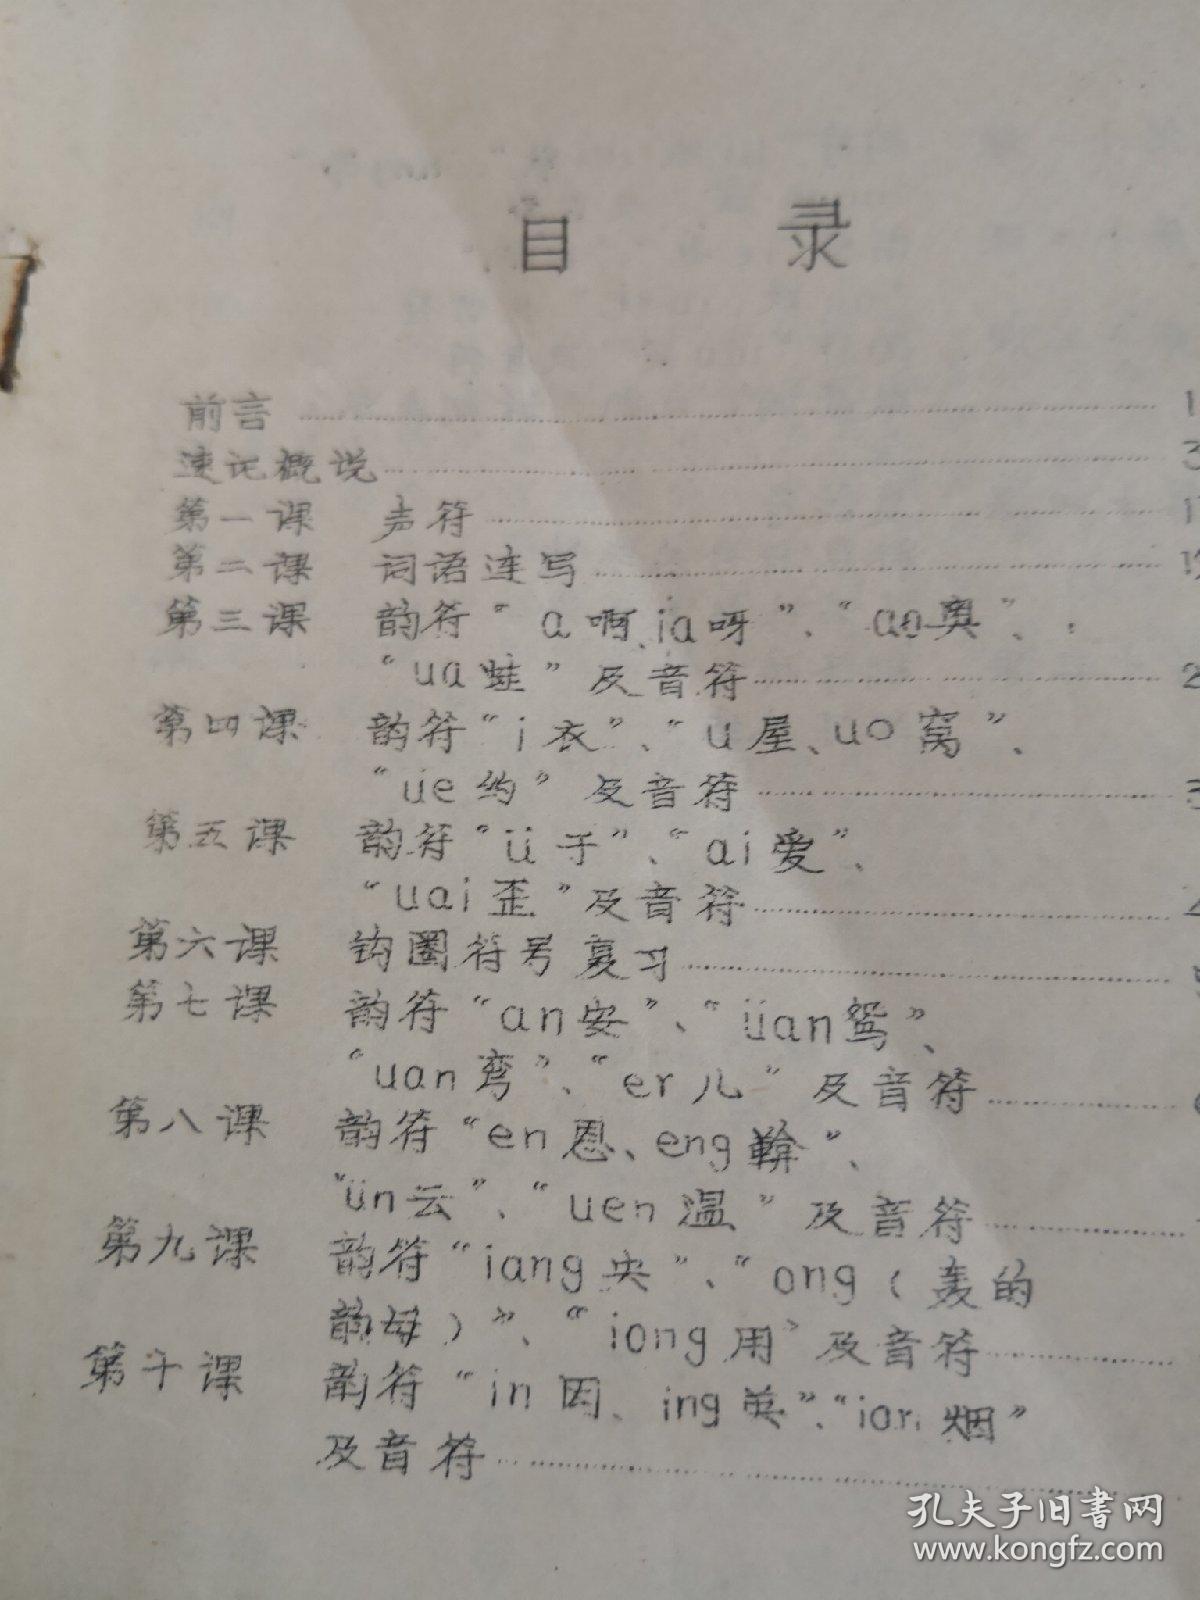 目 录
前言 1
速记概说 3
第一课 声符
第二课 词语连写
第三课 韵符“a啊、ia呀”、“ao奥”、
“ua蛙”及音符
第四课 韵符“i衣”、“u屋、uo窝”、
“üe约”及音符
第五课 韵符“ü于”、“ai爱”、
“uai歪”及音符
第六课 钩圈符号复习
第七课 韵符“an安”、“üan鸳”、
“uan弯”、“er儿”及音符
第八课 韵符“en恩、eng鞥”、
“ün云”、“uen温”及音符
第九课 韵符“iang央”、“ong（轰的
韵母）”、“iong用”及音符
第十课 韵符“in因、ing英”、“ian烟”
及音符
孔夫子旧书网
www.kongfz.com